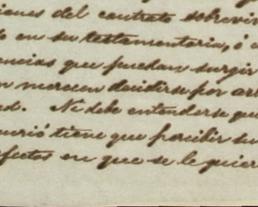 iones del contrato sobrevi
o en su testamentaria, ó
encias que puedan surgir
n merecen decidirse por ar
ed. Ni debe entenderse que
murió tiene que percibir su
efectos en que se le quier